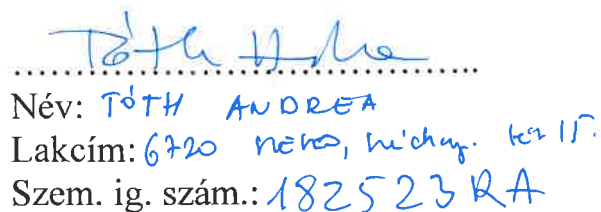 Tóth Andrea
Név: TÓTH ANDREA
Lakcím: 6720 tér 15.
Szem. ig. szám.: 182523RA